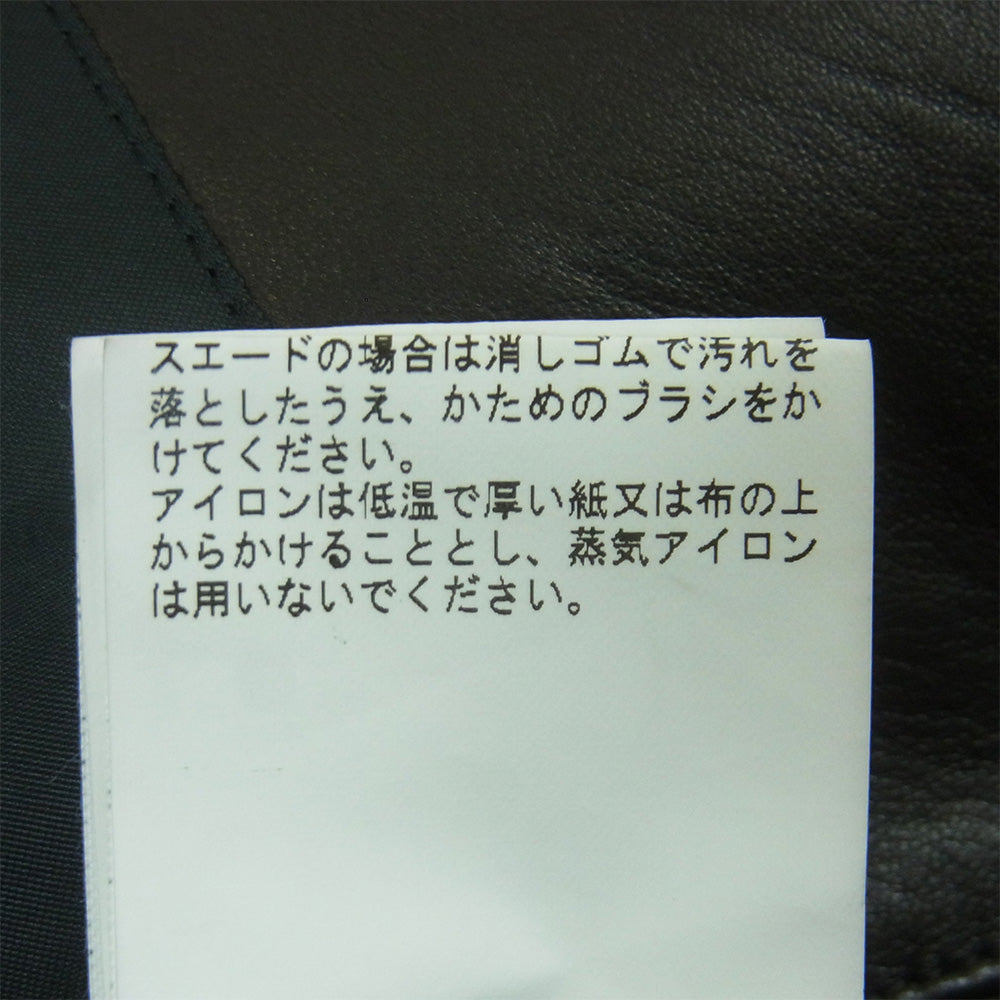 スエードの場合は消しゴムで汚れを
落としたうえ、かためのブラシをか
けてください。
アイロンは低温で厚い紙又は布の上
からかけることとし、蒸気アイロン
は用いないでください。